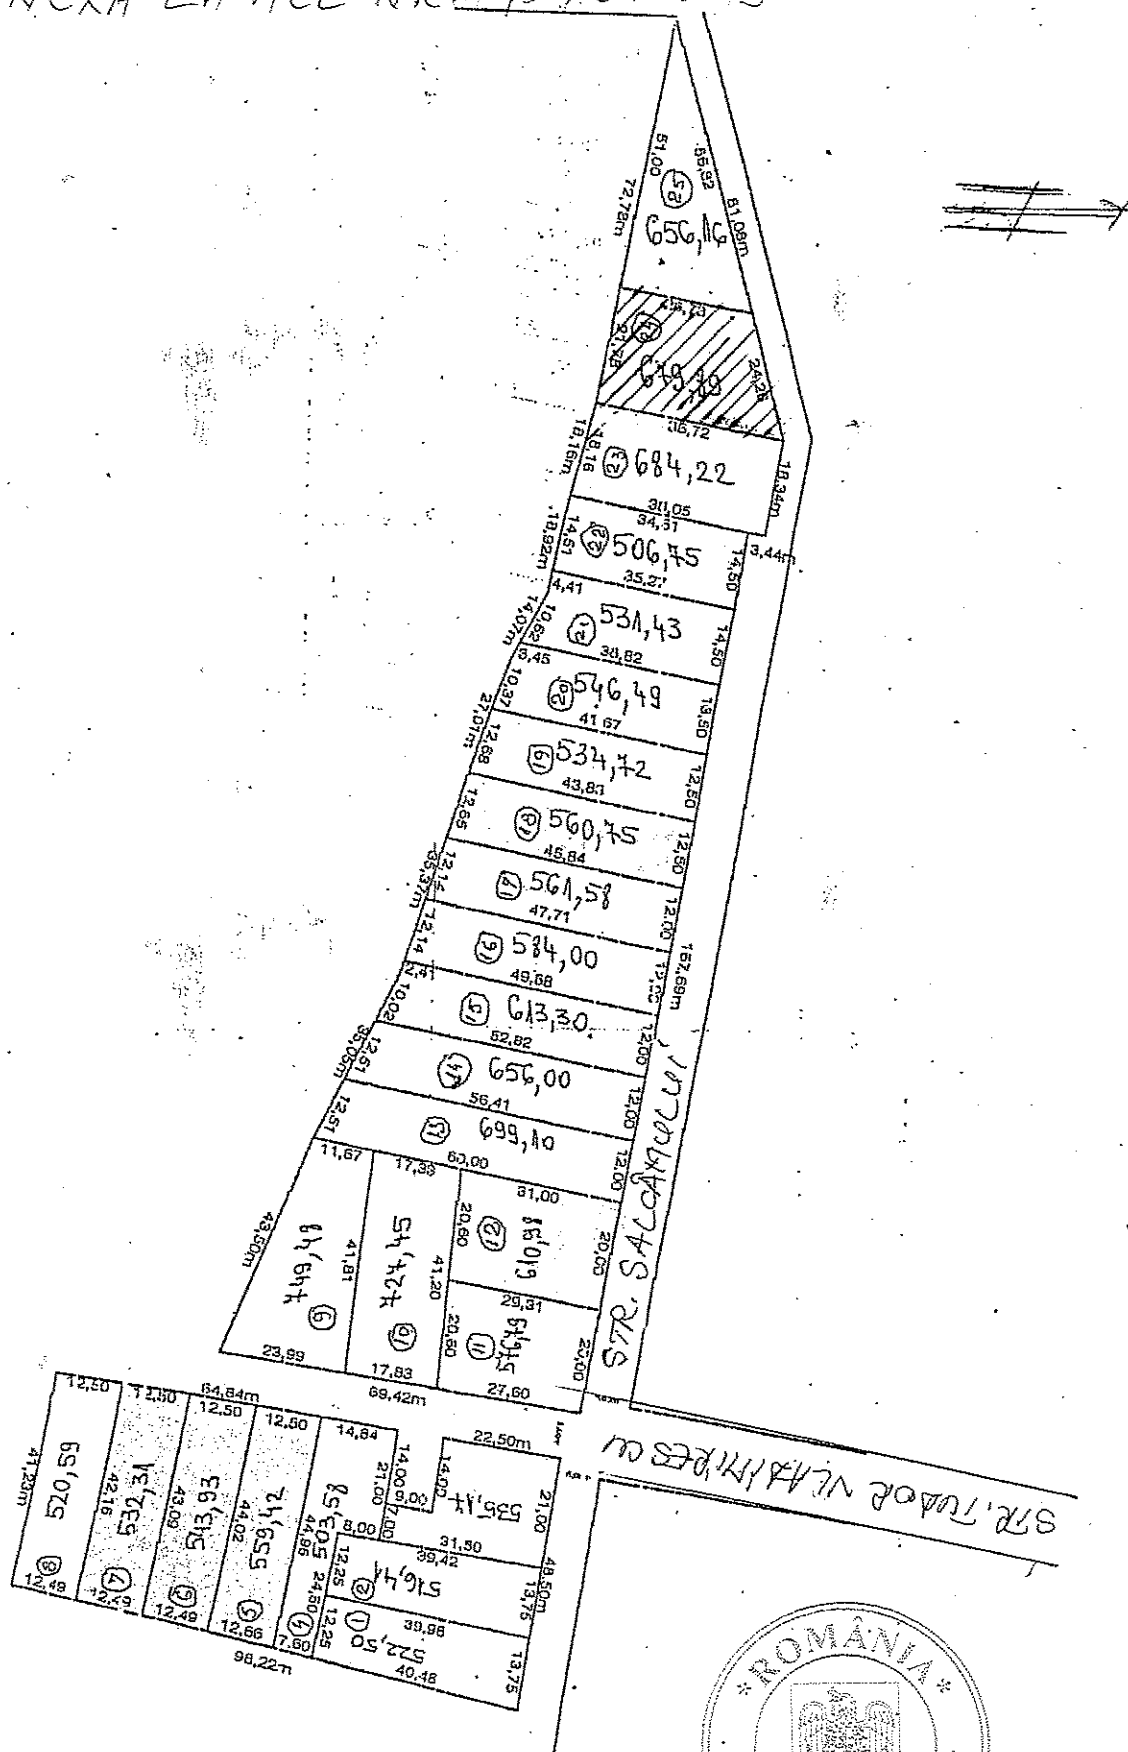 51,00
72,78m
55,92
61,08m
25
656,16
24
21,78
679,79
24,26
36,72
18,16m
18,16
23 684,22
18,34m
34,51
18,92m
14,51
22 506,75
14,50
3,44m
35,27
4,41
14,07m
10,62
21 531,43
14,50
3,45
10,37
20 546,49
13,50
41,67
27,01m
12,68
19 534,72
12,50
43,83
12,65
18 560,75
12,50
45,84
35,37m
12,14
17 561,58
12,00
47,71
12,14
16 584,00
49,68
167,69m
10,02
15 613,30
12,00
52,82
35,05m
12,51
14 656,00
12,00
56,41
12,51
13 699,10
12,00
STR. SALCÂMULUI
11,67
17,33
60,00
31,00
43,50m
749,48
9
41,81
724,45
10
41,20
20,60
12
610,98
20,00
29,31
20,60
11
546,79
20,00
23,99
17,83
69,42m
27,60
STR. TUDOR VLADIMIRESCU
12,50
12,50
64,84m
12,50
12,50
14,84
22,50m
41,23m
520,59
8
42,16
532,31
7
43,09
543,93
6
44,02
559,42
5
44,95
503,58
4
14,00
21,00
14,00
6,00
7,00
535,14
21,00
8,00
31,50
39,42
12,25
2
516,41
48,50m
13,75
24,50
12,25
39,96
1
522,50
13,75
40,48
12,49
12,49
12,49
12,66
7,60
98,22m
* ROMÂNIA *